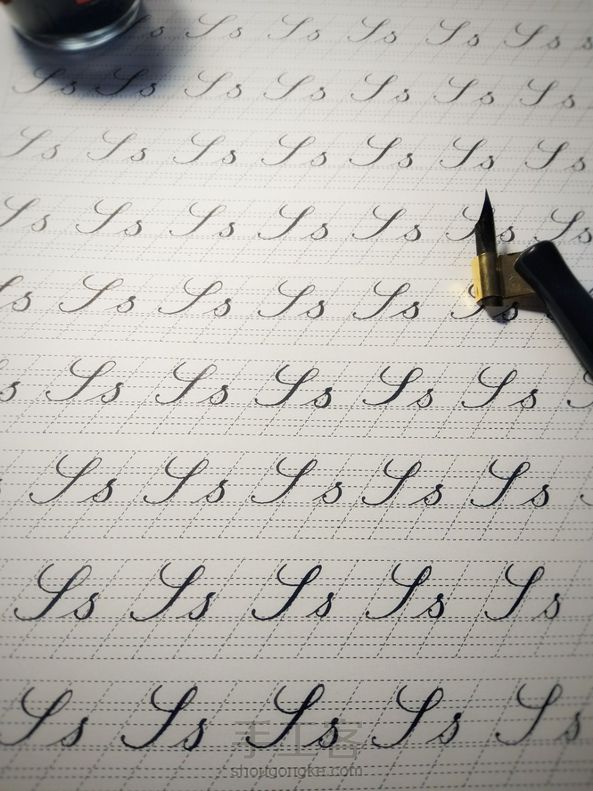 Ss Ss Ss Ss Ss Ss
Ss Ss Ss Ss Ss Ss Ss
Ss Ss Ss Ss Ss Ss Ss
Ss Ss Ss Ss Ss Ss Ss
Ss Ss Ss Ss Ss Ss
s Ss Ss Ss Ss Ss
Ss Ss Ss Ss Ss
Ss Ss Ss Ss Ss
Ss Ss Ss Ss Ss
手工客
shougongke.com